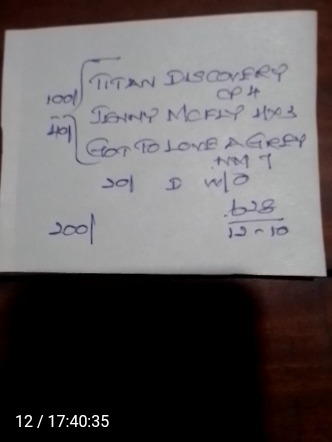 100/ TITAN DISCOVERY
CP 4
40/ JENNY MCFLY HX3
GOT TO LOVE A GREY
NM 7
20/ D W/O
200/ 628
12-10
12 / 17:40:35